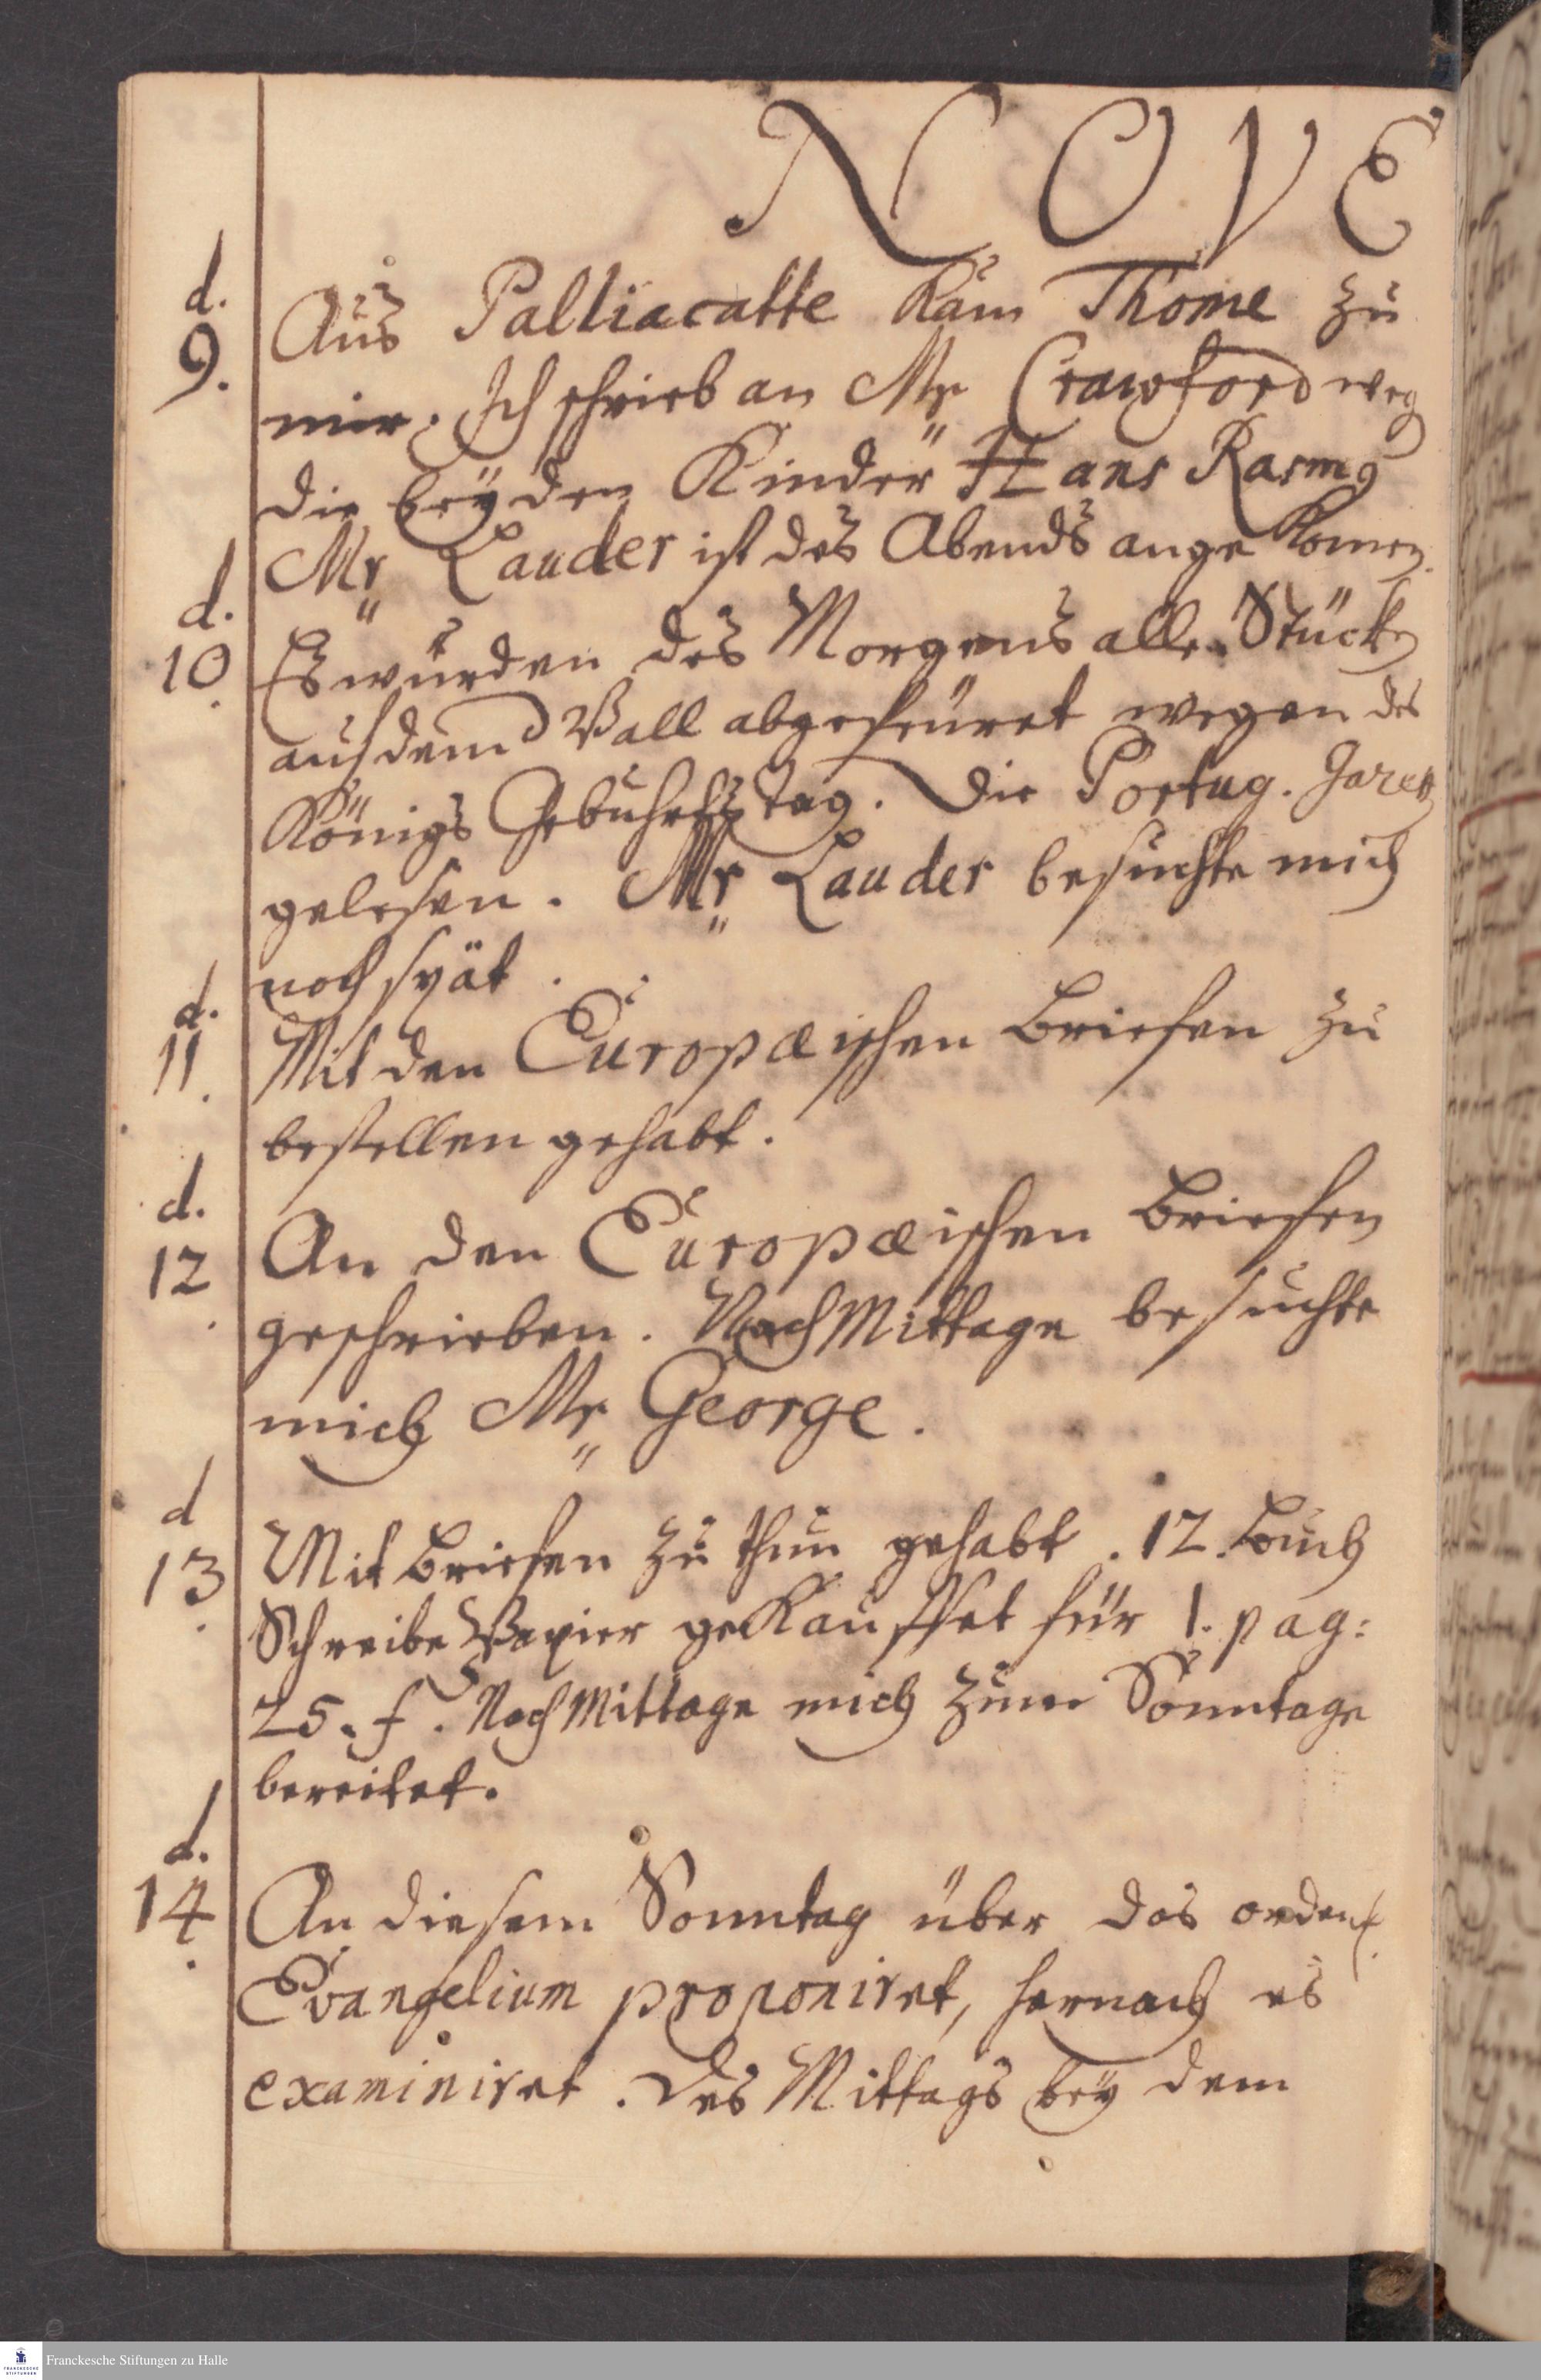 NOVE
d. 9. Aus Palliacatte kam Thome zu
mir. Ich schrieb an Mr Crawford weg
die beyden Kinder Hans Rasmg
Mr Lauder ist des Abends angekomen.
d. 10. Es wurden des Morgens alle Stücke
auf dem Wall abgefeuret wegen des
Königs Gebuhrts Tag. Die Portug.
gelesen. Mr Lauder besuchte mich
noch spät.
d. 11. Mit den Europæischen Briefen zu
bestellen gehabt.
d. 12. An den Europæischen Briefen
geschrieben. Nach Mittage besuchte
mich Mr George.
d 13. Mit Briefen zu thun gehabt. 12. Buch
Schreibe Papier gekauffet für 1. pag:
25. f. Nach Mittage mich zum Sonntage
bereitet.
d. 14. An diesem Sonntag über das ordentl.
Evangelium proponiret, hernach es
examiniret. Des Mittags bey dem
Franckesche Stiftungen zu Halle